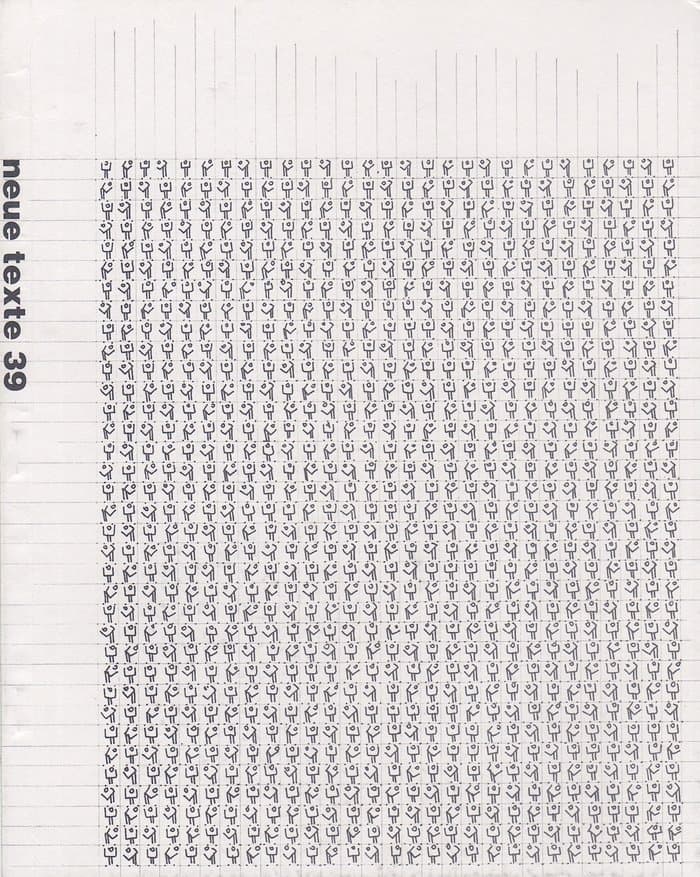 neue texte 39